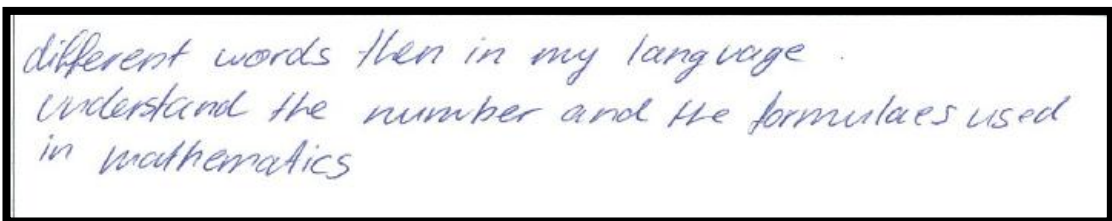 different words then in my language.
understand the number and the formulaes used
in mathematics